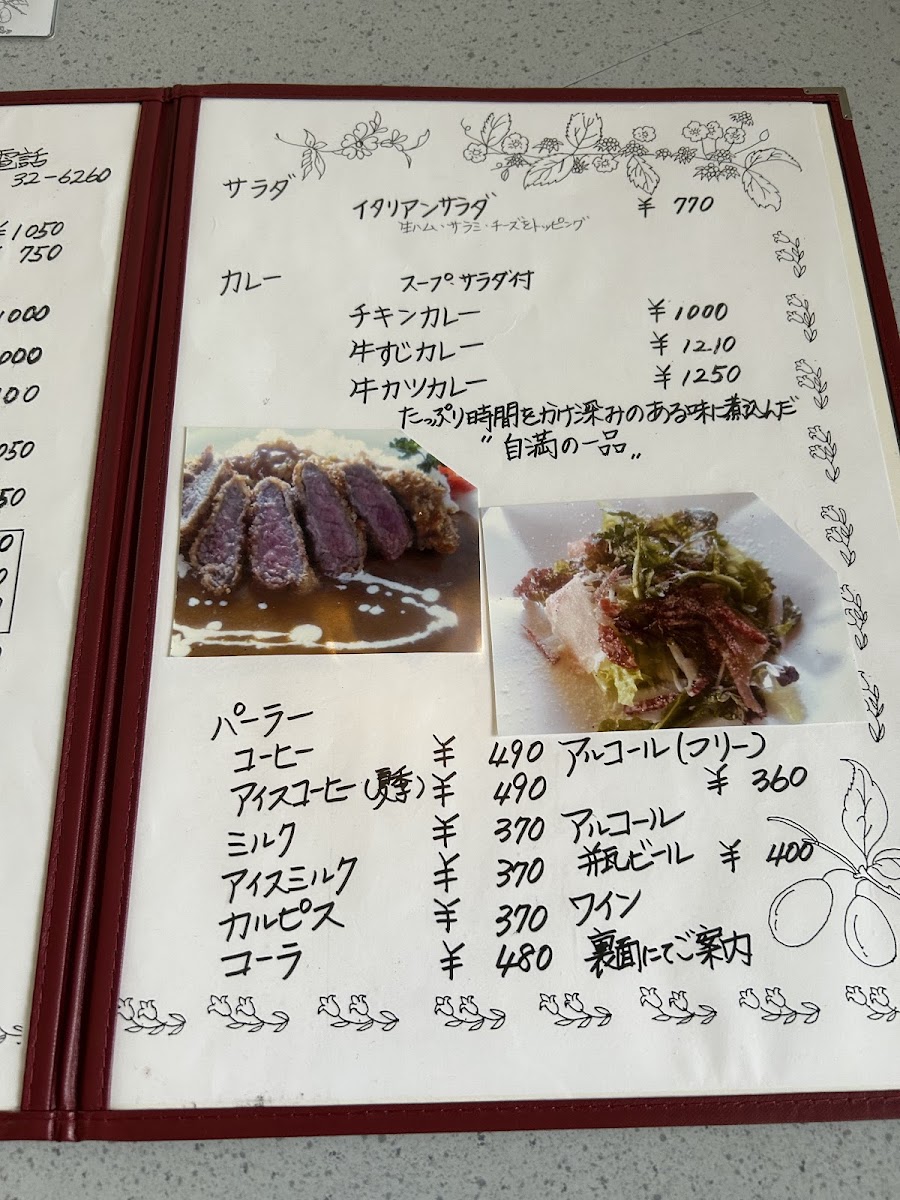 電話
32-6260
¥1050
750
1000
000
00
050
50
0
0
サラダ
イタリアンサラダ ¥ 770
生ハム・サラミ・チーズをトッピング
カレー スープ・サラダ付
チキンカレー ¥1000
牛すじカレー ¥1210
牛カツカレー ¥1250
たっぷり時間をかけ深みのある味に煮込んだ
"自満の一品"
パーラー
コーヒー ¥ 490 アルコール(フリー)
アイスコーヒー(夏季) ¥ 490 ¥ 360
ミルク ¥ 370 アルコール
アイスミルク ¥ 370 瓶ビール ¥ 400
カルピス ¥ 370 ワイン
コーラ ¥ 480 裏面にてご案内